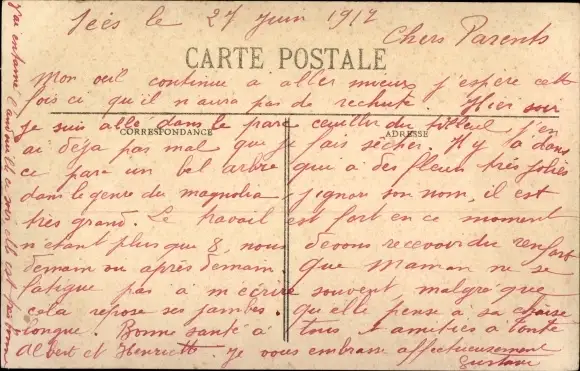 Sées le 27 Juin 1917
CARTE POSTALE
Chers Parents
Mon oeil continue a aller mieux j'espère cette
fois ce qu'il n'aura pas de rechute. Hier soir
je suis allé dans le parc cueillir du tilleul, j'en
CORRESPONDANCE
ADRESSE
ai déja pas mal que je fais sécher. Il y a dans
ce parc un bel arbre qui a des fleurs très jolies
dans le genre du magnolia, j'ignore son nom, il est
très grand. Le travail est fort en ce moment
n'étant plus que 8, nous devons recevoir du renfort
demain ou après demain. que Maman ne se
fatigue pas à m'écrire souvent malgré que
cela repose ses jambes. qu'elle pense à sa chaise
longue. Bonne santé à tous & amitiés à toute
Albert et Henriette. Je vous embrasse affectueusement
Gustave
J'ai entamé l'andouille